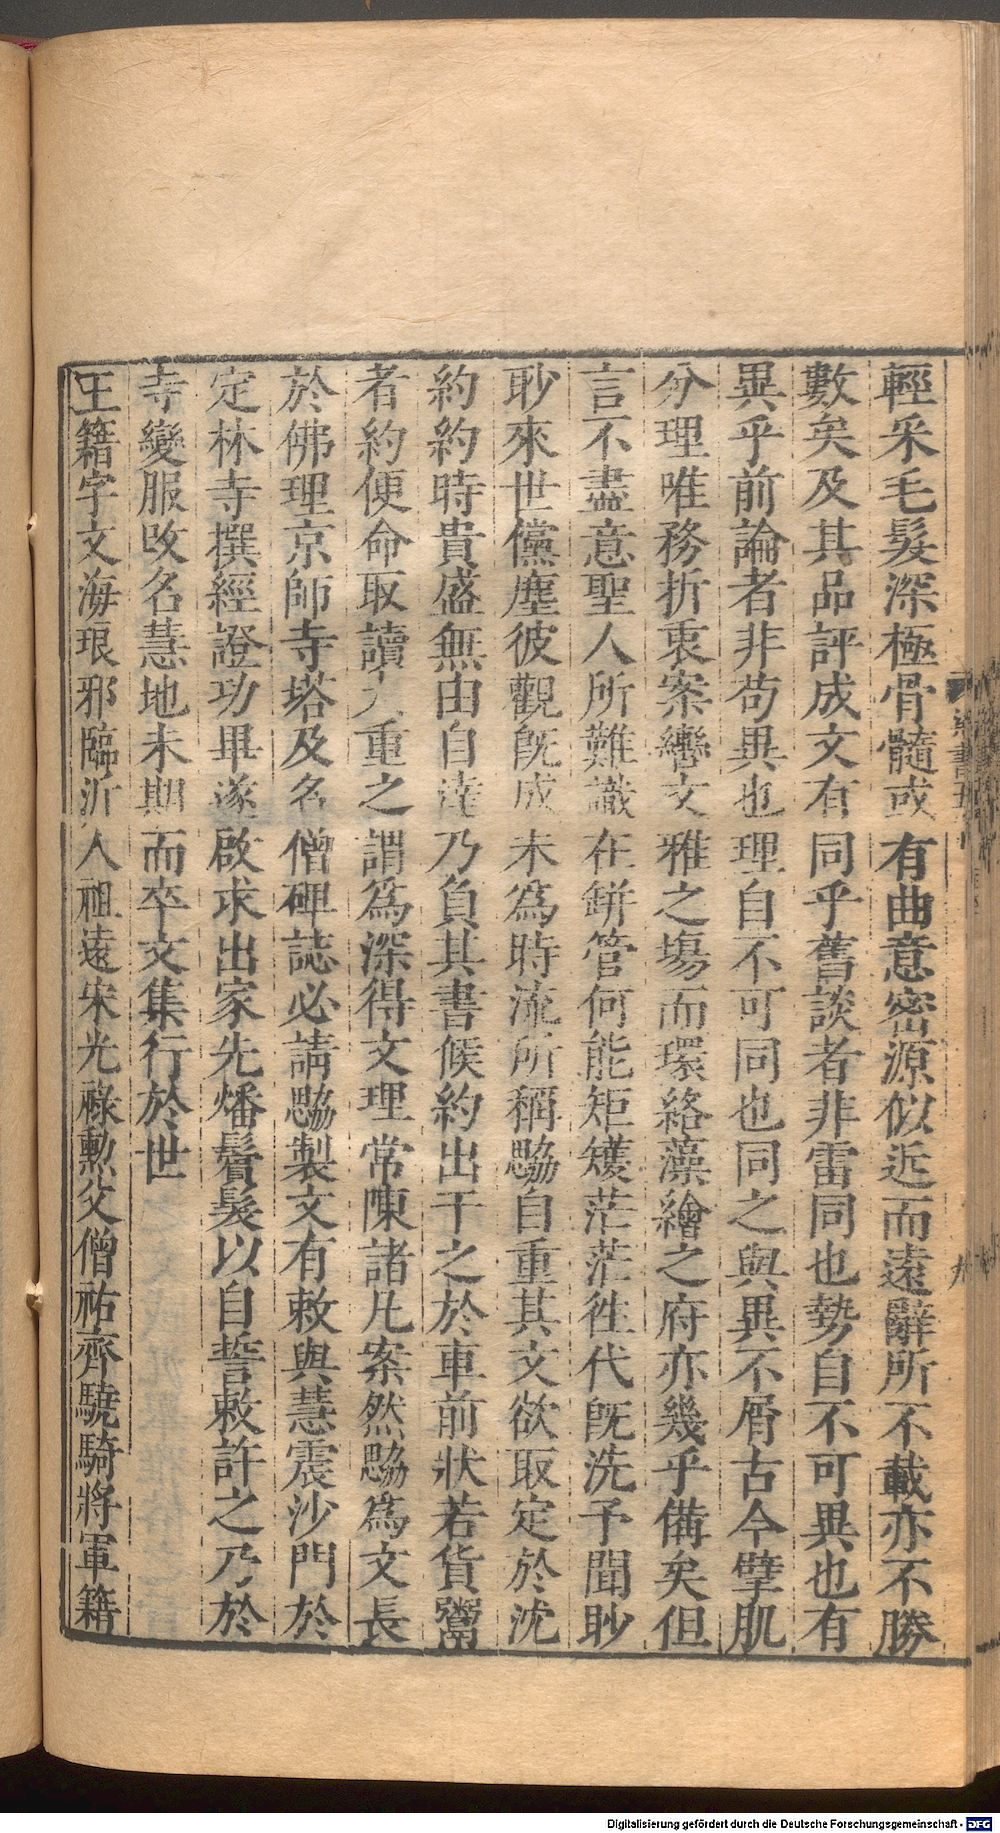 輕采毛髮深極骨髓或有曲意密源似近而遠辭所不載亦不勝
數矣及其品評成文有同乎舊談者非雷同也勢自不可異也有
異乎前論者非苟異也理自不可同也同之與異不屑古今擘肌
分理唯務折衷案轡文雅之場而環絡藻繪之府亦幾乎備矣但
言不盡意聖人所難識在缾管何能矩矱茫茫徃代旣洗予聞眇
眇來世儻塵彼觀旣成未爲時流所稱勰自重其文欲取定於沈
約約時貴盛無由自達乃負其書候約出干之於車前狀若貨鬻
者約便命取讀大重之謂爲深得文理常陳諸几案然勰爲文長
於佛理京師寺塔及名僧碑誌必請勰製文有敕與慧震沙門於
定林寺撰經證功畢遂啟求出家先燔鬢髮以自誓敕許之乃於
寺變服改名慧地未期而卒文集行於世
王籍字文海琅邪臨沂人祖遠宋光祿勲父僧祐齊驍騎將軍籍
梁書五十
九
Digitalisierung gefördert durch die Deutsche Forschungsgemeinschaft - DFG